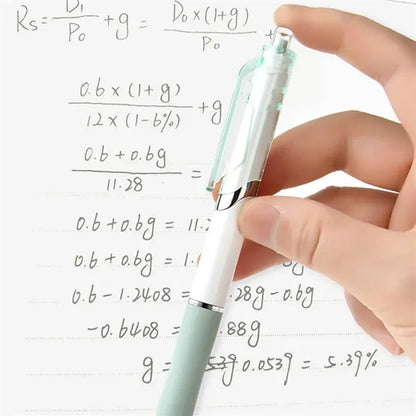 Rs = D₁/P₀ + g = D₀×(1+g)/P₀ +
0.6×(1+g)/12×(1-6%) + g
0.6+0.6g/11.28 =
0.6+0.6g = 11.2
0.6+0.6g = 1.
0.6-1.2408 = .28g-0.6g
-0.6408 = .88g
g = 0.0539 = 5.39%